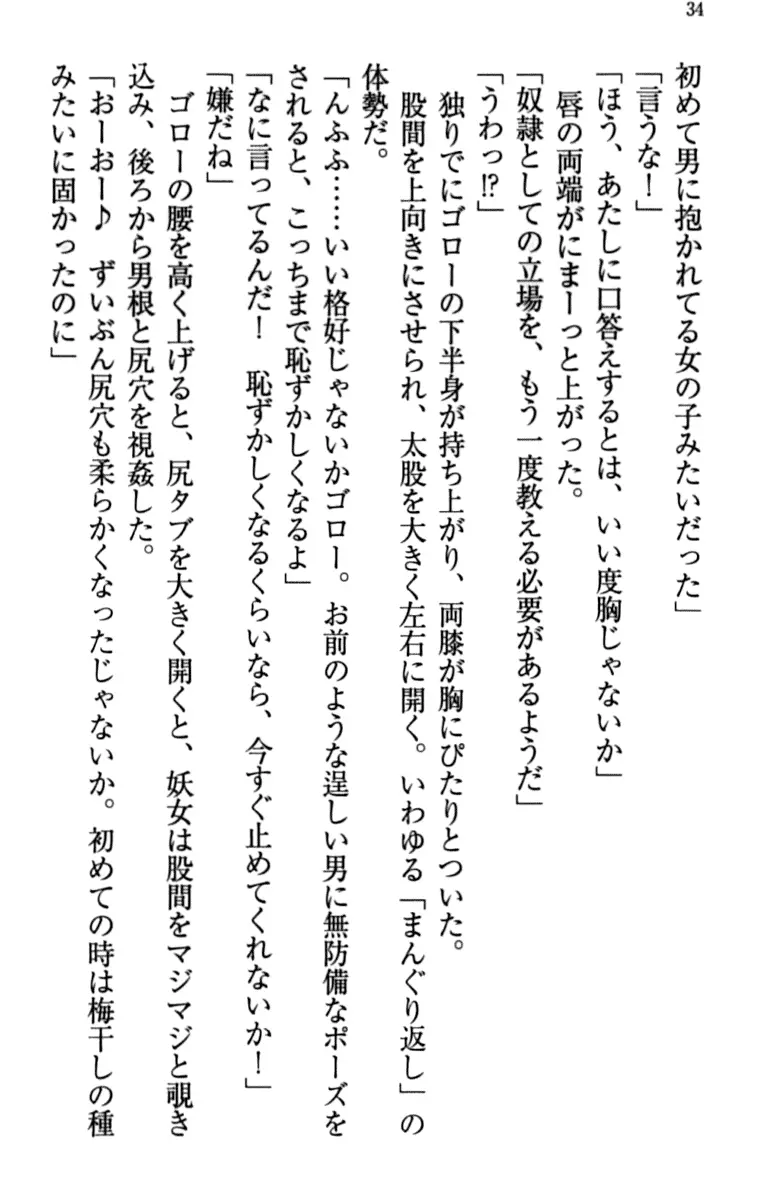 34
初めて男に抱かれてる女の子みたいだった」
「言うな！」
「ほう、あたしに口答えするとは、いい度胸じゃないか」
　唇の両端がにまーっと上がった。
「奴隷としての立場を、もう一度教える必要があるようだ」
「うわっ!?」
　独りでにゴローの下半身が持ち上がり、両膝が胸にぴたりとついた。
　股間を上向きにさせられ、太股を大きく左右に開く。いわゆる「まんぐり返し」の
体勢だ。
「んふふ……いい格好じゃないかゴロー。お前のような逞しい男に無防備なポーズを
されると、こっちまで恥ずかしくなるよ」
「なに言ってるんだ！　恥ずかしくなるくらいなら、今すぐ止めてくれないか！」
「嫌だね」
　ゴローの腰を高く上げると、尻タブを大きく開くと、妖女は股間をマジマジと覗き
込み、後ろから男根と尻穴を視姦した。
「おーおー♪　ずいぶん尻穴も柔らかくなったじゃないか。初めての時は梅干しの種
みたいに固かったのに」